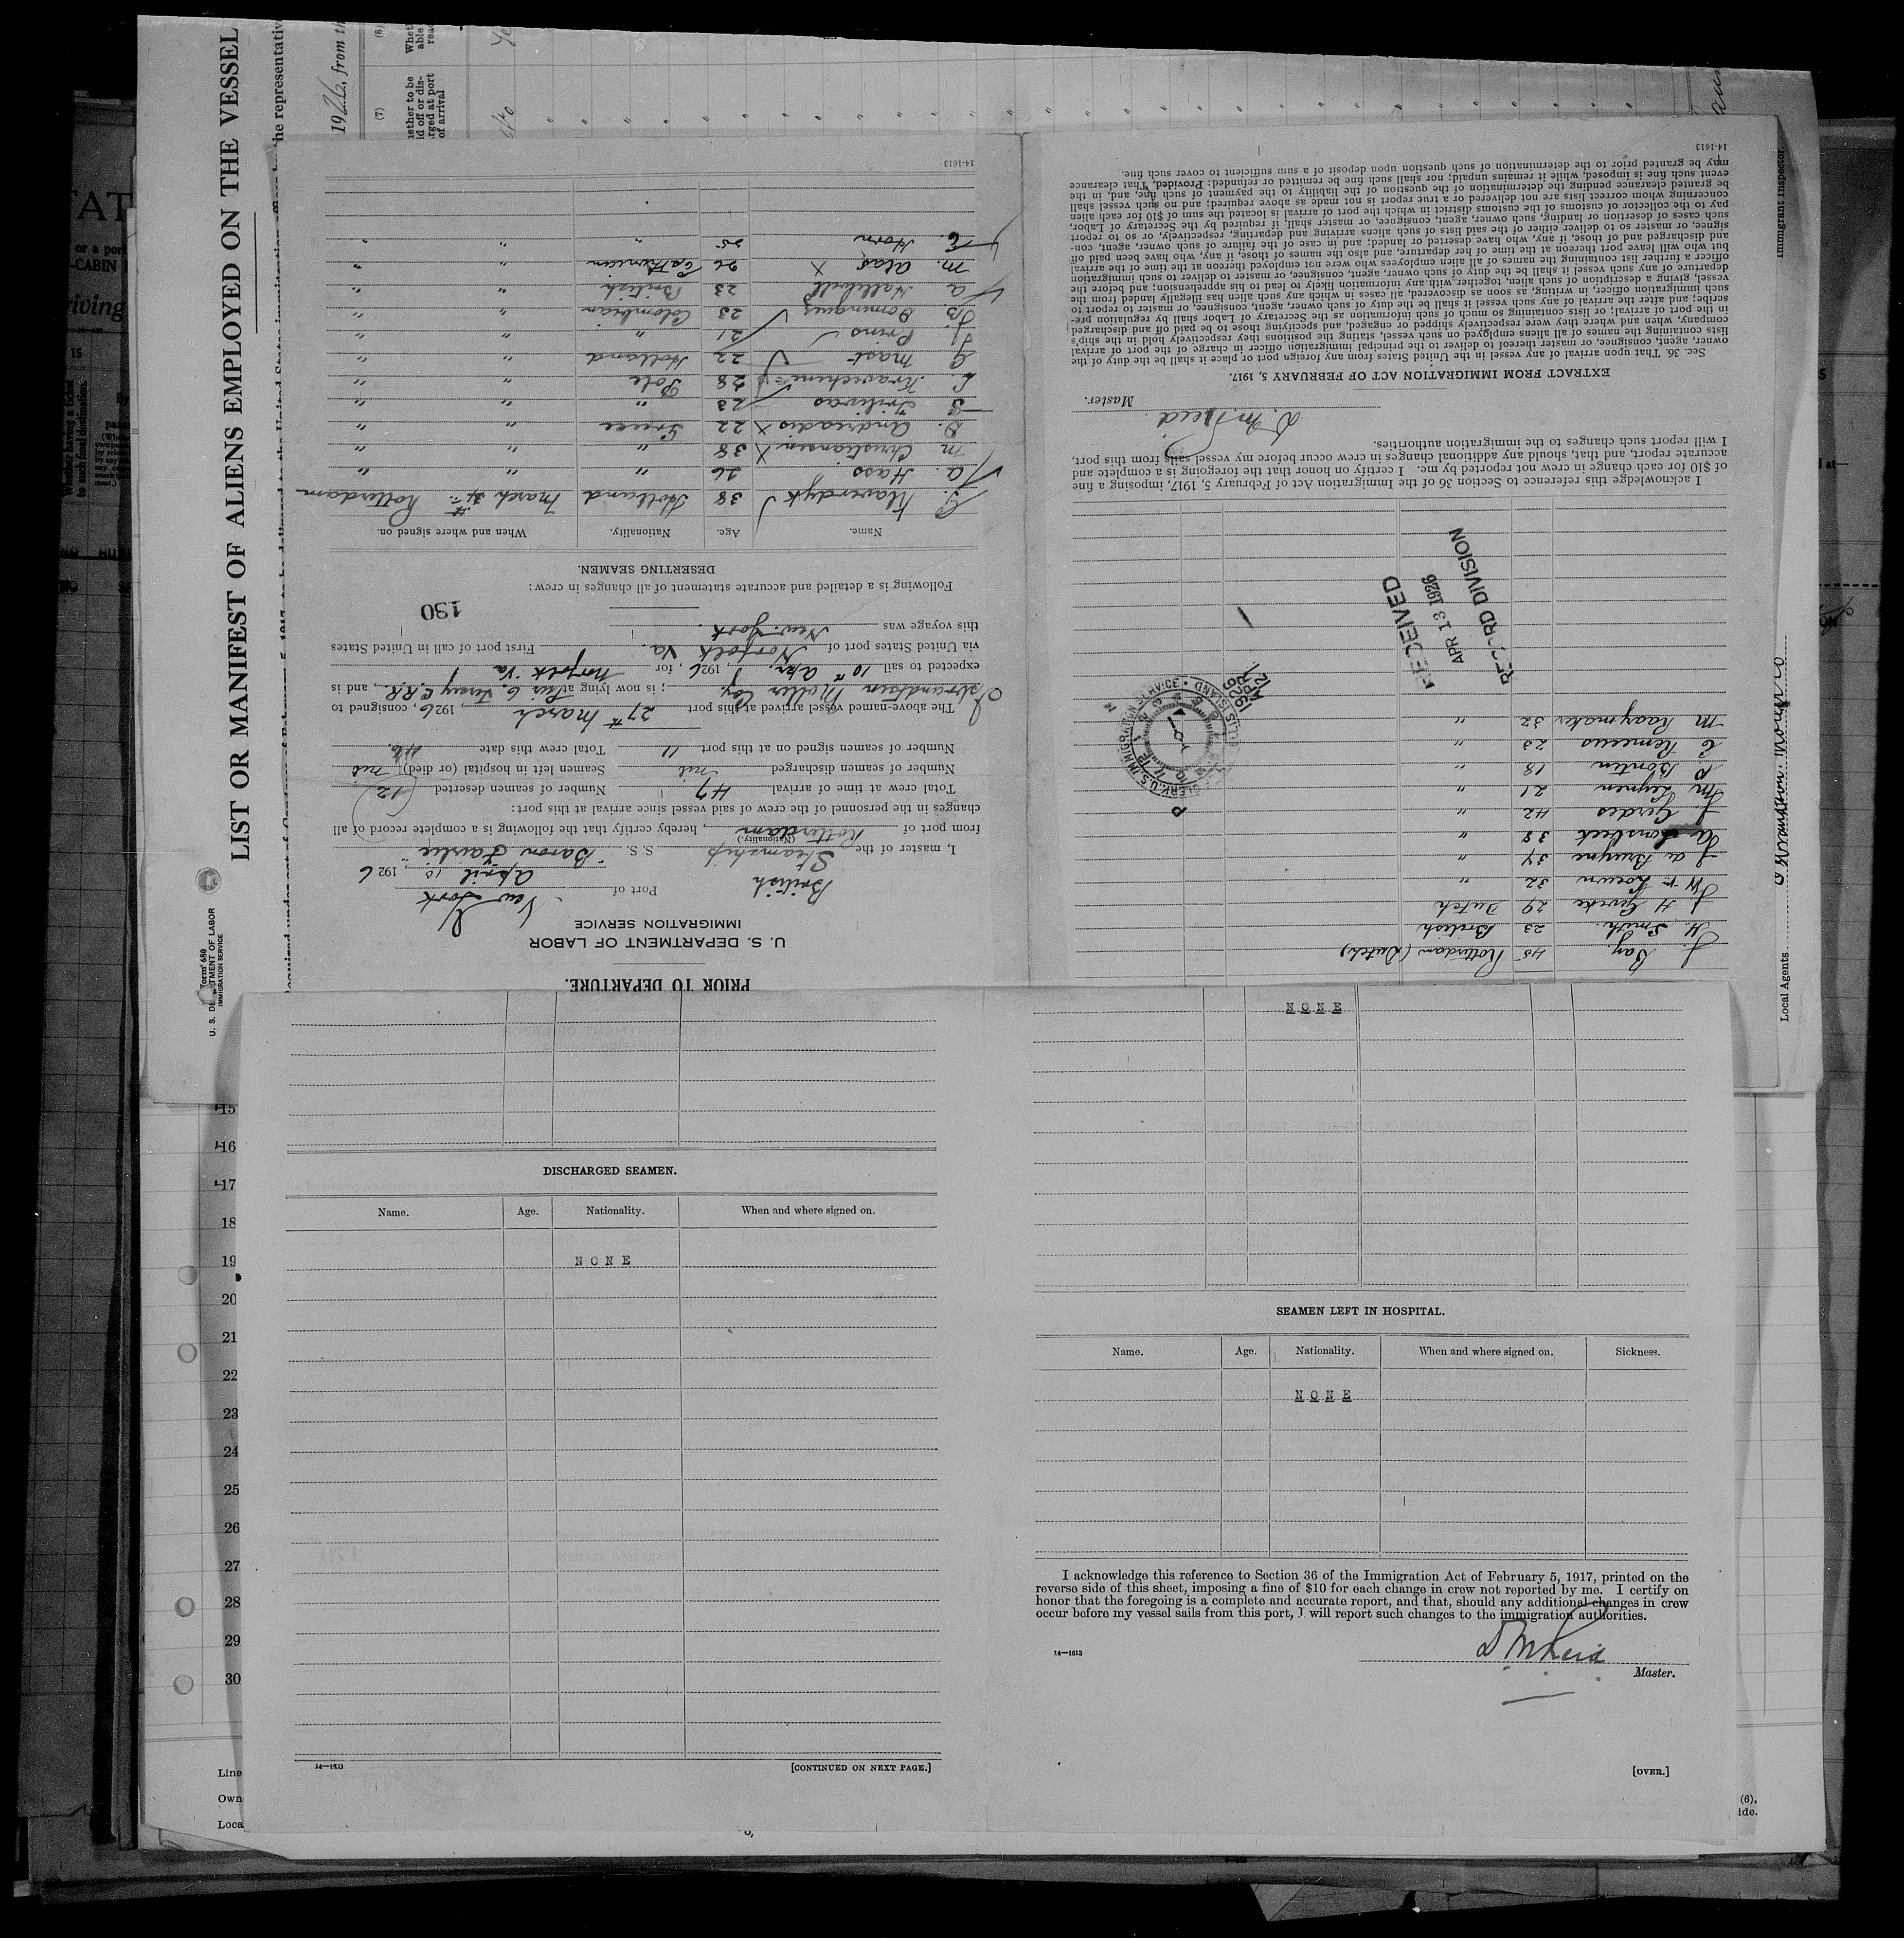 LIST OR MANIFEST OF ALIENS EMPLOYED ON THE VESSEL
Form 680
U. S. DEPARTMENT OF LABOR
IMMIGRATION SERVICE
1926, from th
(7)
(6)
of arrival
Immigrant Inspector.
Local Agents
PRIOR TO DEPARTURE.
U. S. DEPARTMENT OF LABOR
IMMIGRATION SERVICE
British
Port of New York
April 10, 1926
I, master of the Steamship S. S. "Baron Fairlie"
(Nationality.)
from port of Rotterdam, hereby certify that the following is a complete record of all
changes in the personnel of the crew of said vessel since arrival at this port:
Total crew at time of arrival 47 Number of seamen deserted 12
Number of seamen discharged nil Seamen left in hospital (or died) nil
Number of seamen signed on at this port 11 Total crew this date 46.
The above-named vessel arrived at this port 27th March, 1926, consigned to
Moller Coy; is now lying at Pier 6, Jersey C.R.R., and is
expected to sail 10th Apr., 1926, for Norfolk Va
via United States port of Norfolk Va. First port of call in United States
this voyage was New York.
130
Following is a detailed and accurate statement of all changes in crew:
DESERTING SEAMEN.
Name. Age. Nationality. When and where signed on.
G. Klaverdyk 38 Holland March Rotterdam
A. Hass 26 " " "
M. Christiansen 38 " " "
D. Andreadis 22 Greece " "
23 " " "
28 Pole " "
G. Mast 22 Holland " "
J. Prins 21 " " "
Dominguez 23 Colombian " "
A. Halliwell 23 British " "
M. Alas 26 Esthonian " "
C. Horn 25 " " "
14-1613
J. Bay. 45 Rotterdam (Dutch)
H. Smith. 23 British
J. H Gercke 29 Dutch
32 "
J. de Bruyne 34 "
38 "
J. Gerdes 42 "
M Leynen 21 "
P. Bontin 18 "
C Remeeus 23 "
M Raaymaker 32 "
CLERK, U.S. IMMIGRATION SERVICE • ELLIS ISLAND
1926 APR 12
RECEIVED
APR 13 1926
RECORD DIVISION
I acknowledge this reference to Section 36 of the Immigration Act of February 5, 1917, imposing a fine
of $10 for each change in crew not reported by me. I certify on honor that the foregoing is a complete and
accurate report, and that, should any additional changes in crew occur before my vessel sails from this port,
I will report such changes to the immigration authorities.
D. M. Reid
Master.
EXTRACT FROM IMMIGRATION ACT OF FEBRUARY 5, 1917.
Sec. 36. That upon arrival of any vessel in the United States from any foreign port or place it shall be the duty of the
owner, agent, consignee, or master thereof to deliver to the principal immigration officer in charge of the port of arrival
lists containing the names of all aliens employed on such vessel, stating the positions they respectively hold in the ship's
company, when and where they were respectively shipped or engaged, and specifying those to be paid off and discharged
in the port of arrival; or lists containing so much of such information as the Secretary of Labor shall by regulation pre-
scribe; and after the arrival of any such vessel it shall be the duty of such owner, agent, consignee, or master to report to
such immigration officer, in writing, as soon as discovered, all cases in which any such alien has illegally landed from the
vessel, giving a description of such alien, together with any information likely to lead to his apprehension; and before the
departure of any such vessel it shall be the duty of such owner, agent, consignee, or master to deliver to such immigration
officer a further list containing the names of all alien employees who were not employed thereon at the time of the arrival
but who will leave port thereon at the time of her departure, and also the names of those, if any, who have been paid off
and discharged and of those, if any, who have deserted or landed; and in case of the failure of such owner, agent, con-
signee, or master so to deliver either of the said lists of such aliens arriving and departing, respectively, or so to report
such cases of desertion or landing, such owner, agent, consignee, or master shall, if required by the Secretary of Labor,
pay to the collector of customs of the customs district in which the port of arrival is located the sum of $10 for each alien
concerning whom correct lists are not delivered or a true report is not made as above required; and no such vessel shall
be granted clearance pending the determination of the question of the liability to the payment of such fine, and, in the
event such fine is imposed, while it remains unpaid; nor shall such fine be remitted or refunded: Provided, That clearance
may be granted prior to the determination of such question upon deposit of a sum sufficient to cover such fine.
14-1613
DISCHARGED SEAMEN.
Name. Age. Nationality. When and where signed on.
NONE
14—1613
[CONTINUED ON NEXT PAGE.]
NONE
SEAMEN LEFT IN HOSPITAL.
Name. Age. Nationality. When and where signed on. Sickness.
NONE
I acknowledge this reference to Section 36 of the Immigration Act of February 5, 1917, printed on the
reverse side of this sheet, imposing a fine of $10 for each change in crew not reported by me. I certify on
honor that the foregoing is a complete and accurate report, and that, should any additional changes in crew
occur before my vessel sails from this port, I will report such changes to the immigration authorities.
D M Reid
Master.
14—1613
[OVER.]
15
16
17
18
19
20
21
22
23
24
25
26
27
28
29
30
Line
Own
Loca
(6),
ide.